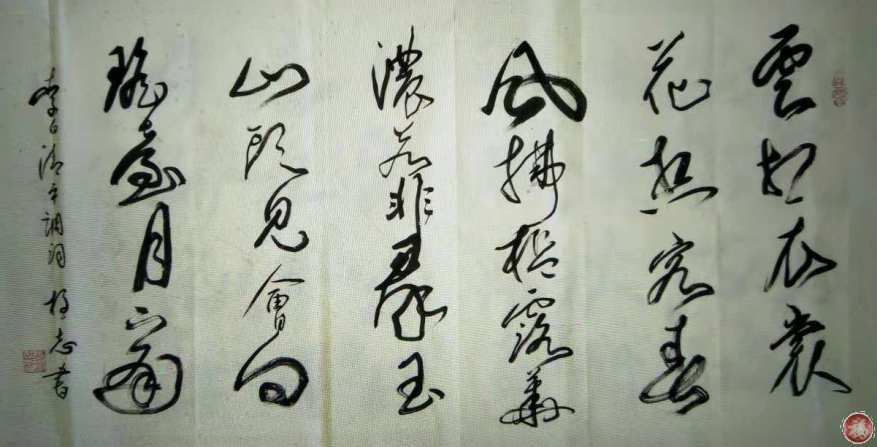 雲想衣裳
花想容春
風拂檻露華
濃若非羣玉
山頭見會向
瑤臺月下逢
李白清平調詞 志書
福